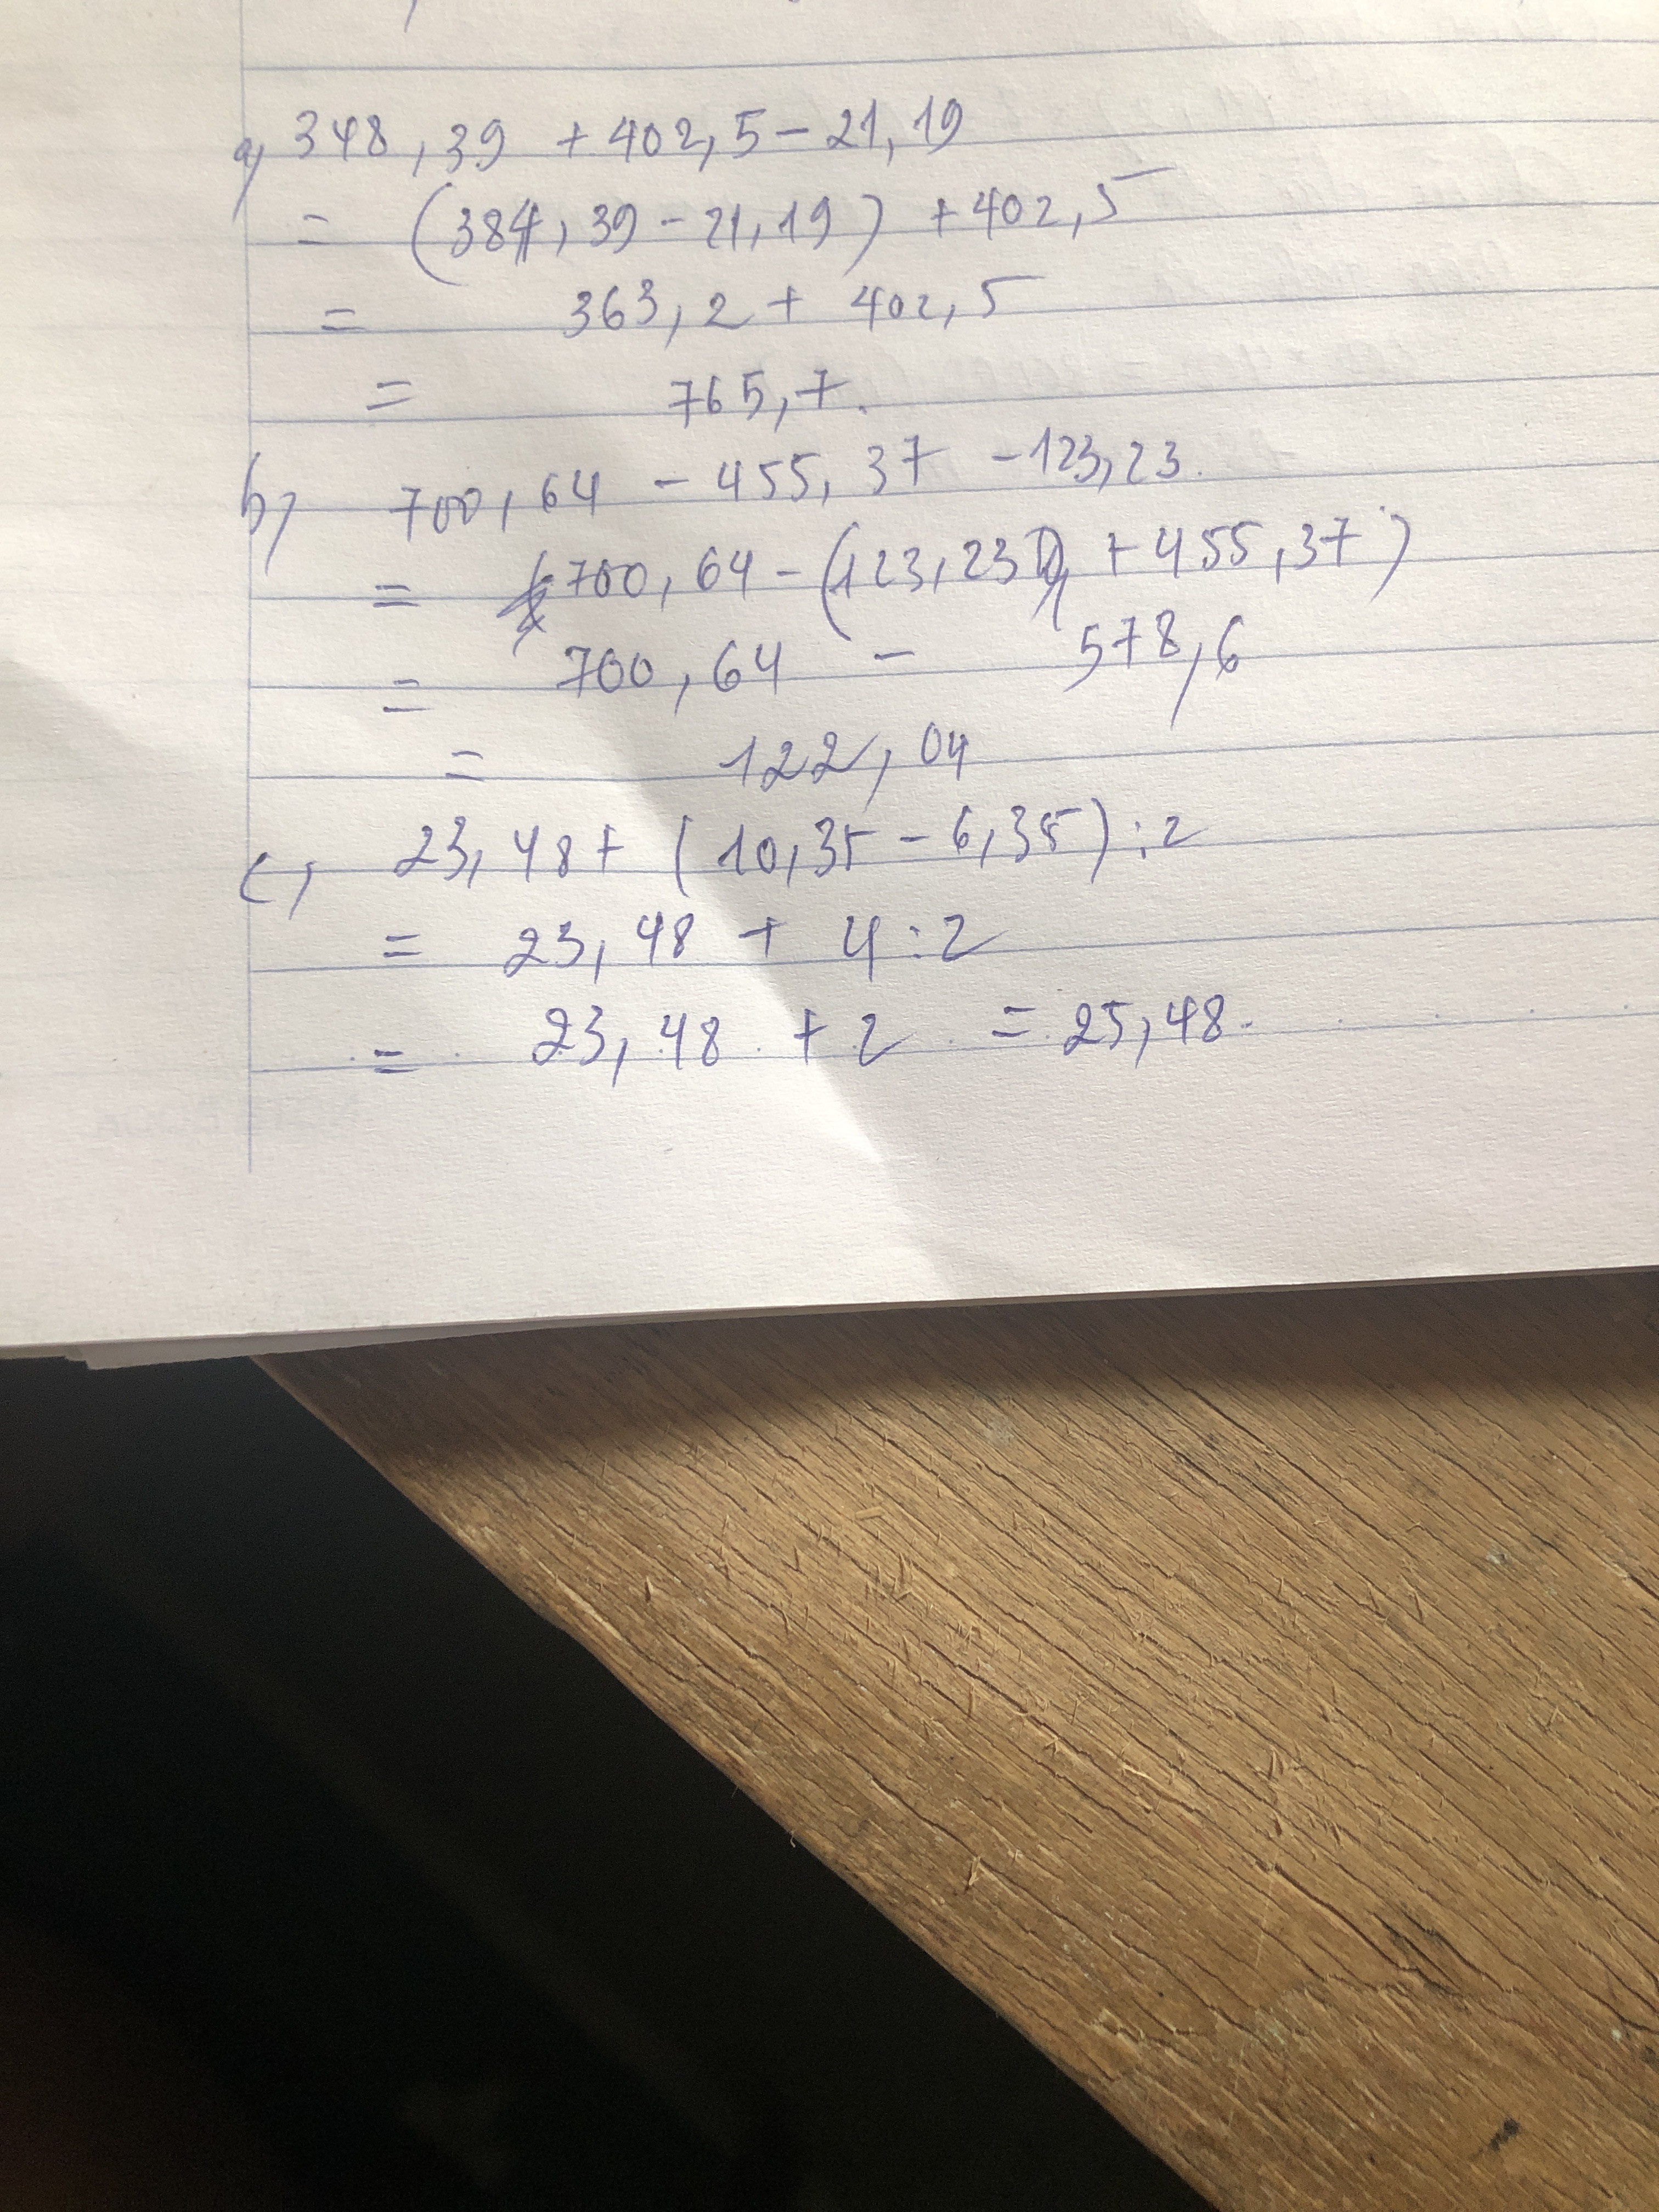 a, 348,39 + 402,5 - 21,19
= (384,39 - 21,19) + 402,5
= 363,2 + 402,5
= 765,7.
b, 700,64 - 455,37 - 123,23.
= 700,64 - (123,23 + 455,37)
= 700,64 - 578,6
= 122,04
c, 23,48 + (10,35 - 6,35) : 2
= 23,48 + 4 : 2
= 23,48 + 2 = 25,48.